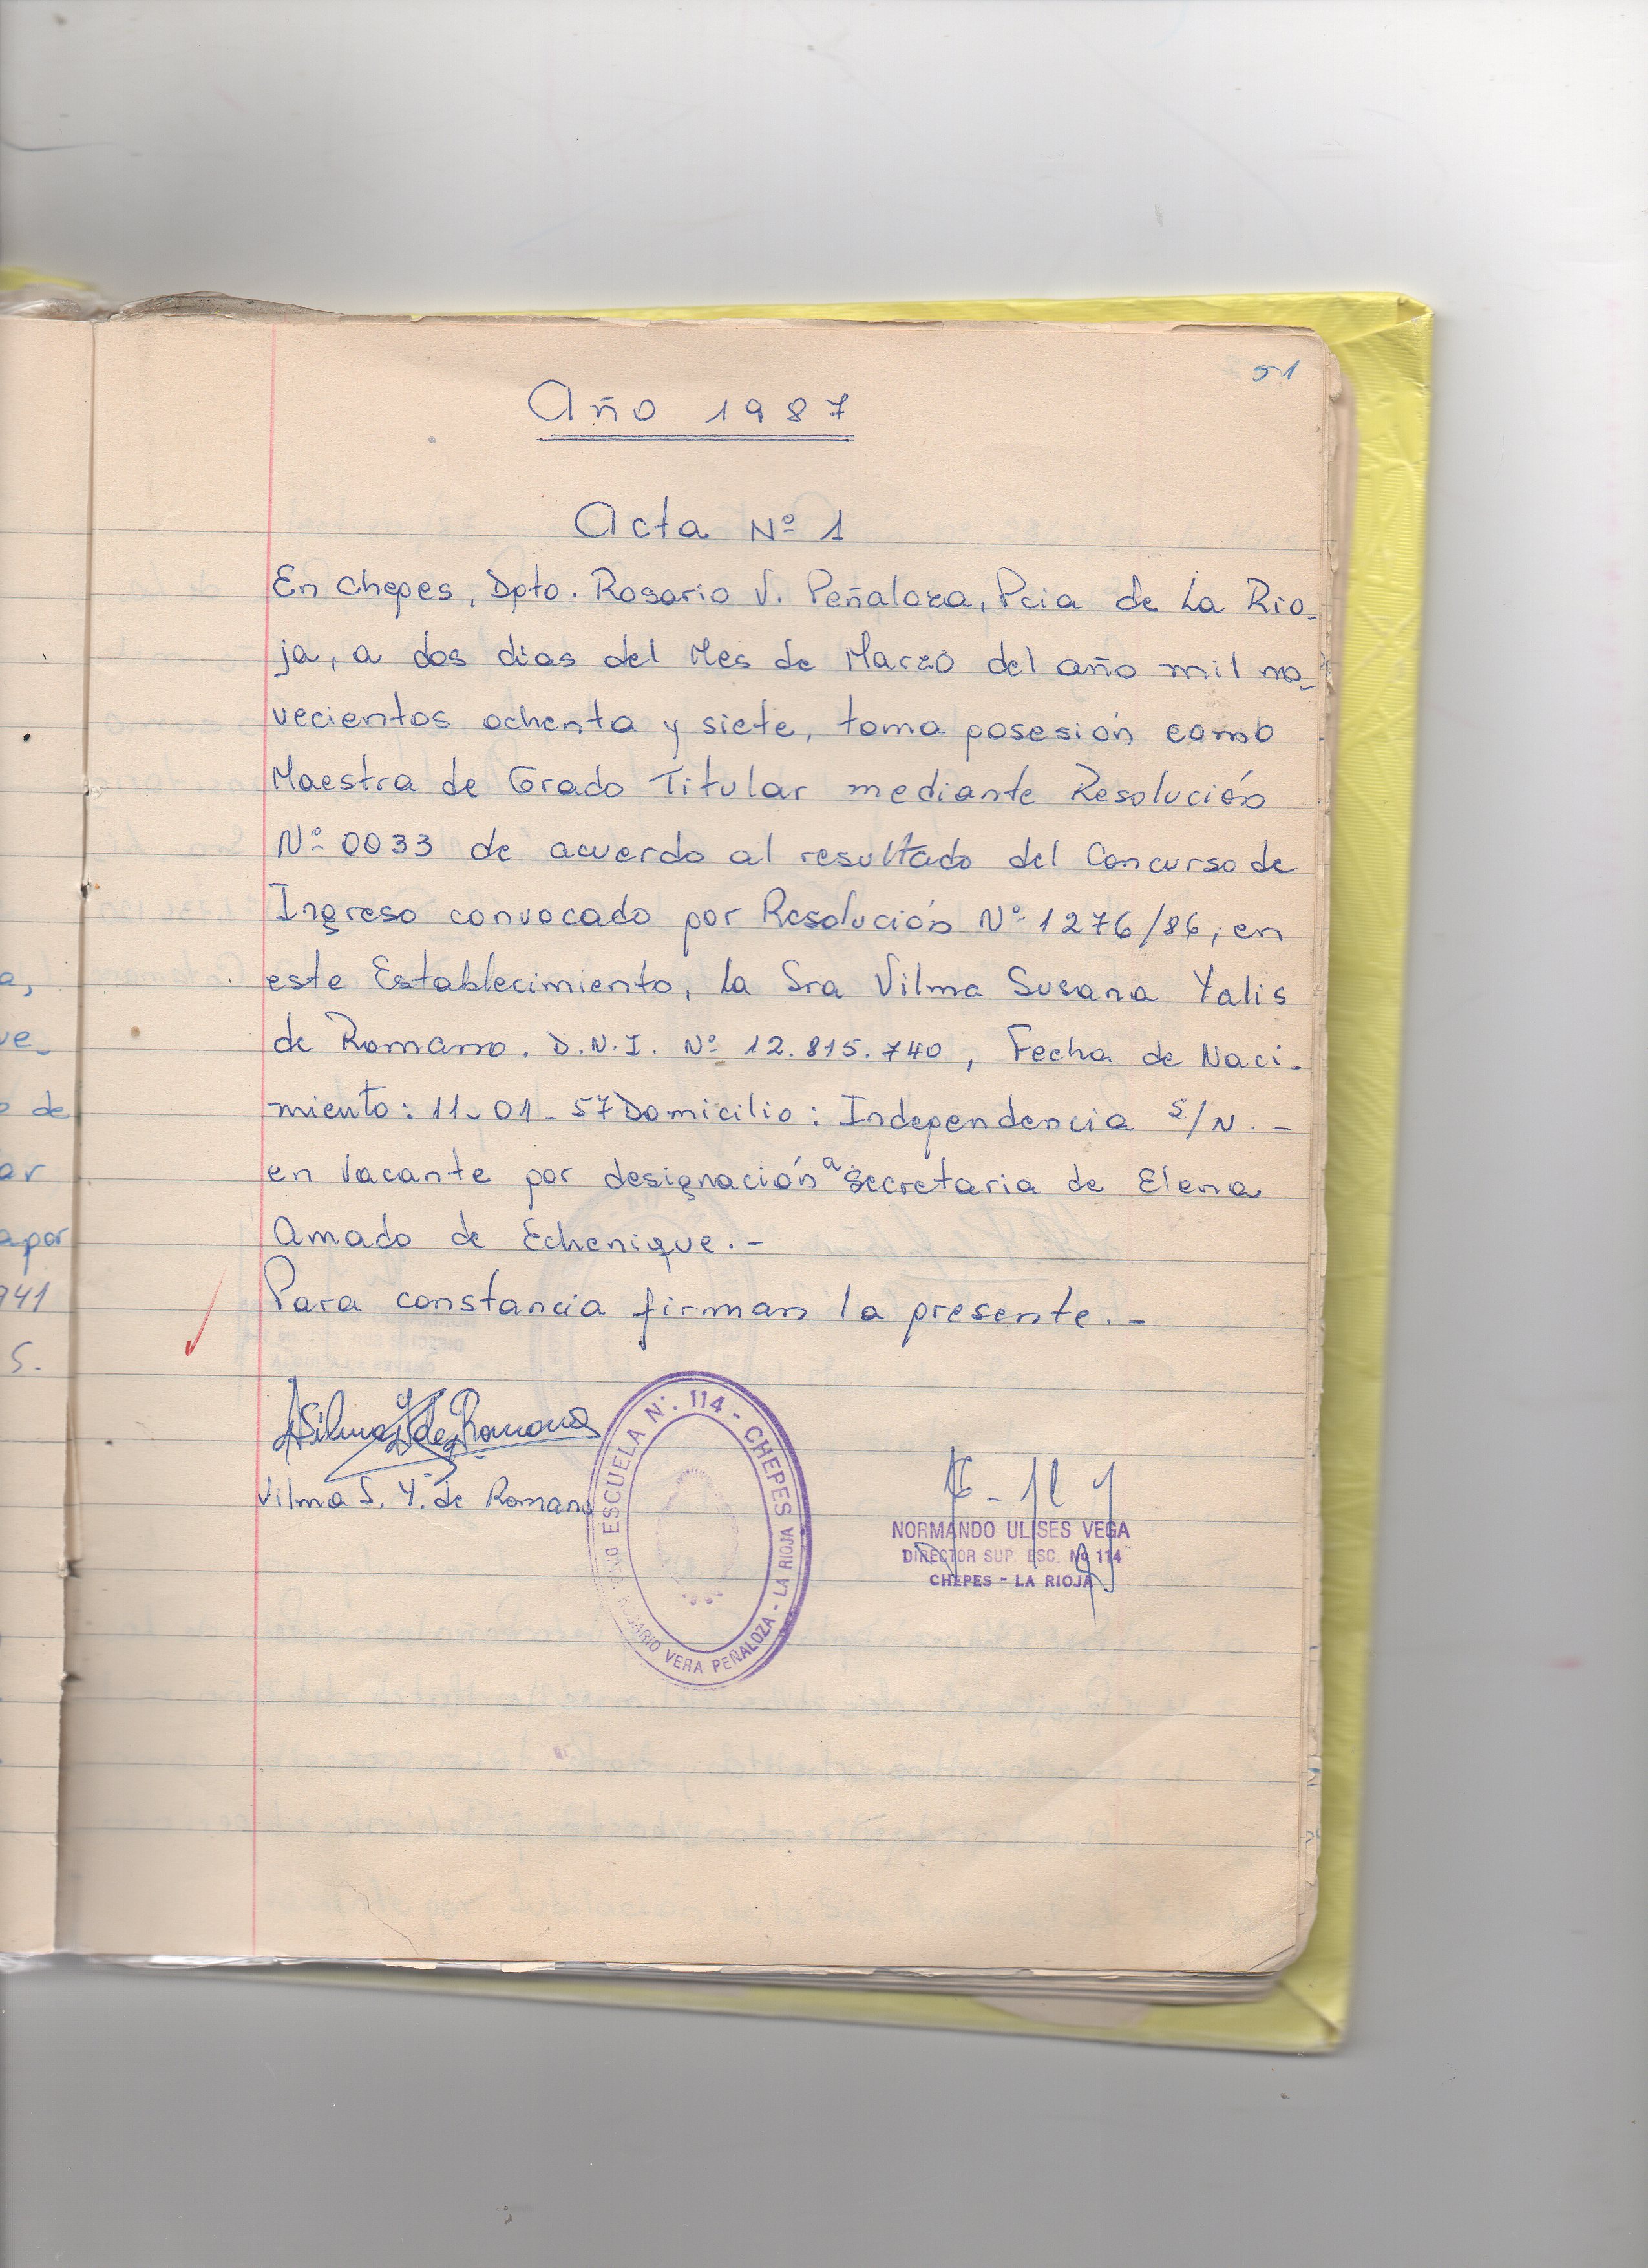 51
Año 1987
Acta Nº 1
En Chepes, Dpto. Rosario V. Peñaloza, Pcia de La Rio-
ja, a dos dias del Mes de Marzo del año mil no-
vecientos ochenta y siete, toma posesión como
Maestra de Grado Titular mediante Resolución
Nº 0033 de acuerdo al resultado del Concurso de
Ingreso convocado por Resolución Nº 1276/86, en
este Establecimiento, la Sra Vilma Susana Yalis
de Romano. D.N.I. Nº 12.815.740, Fecha de Naci-
miento: 11-01-57 Domicilio: Independencia S/N. -
en vacante por designación a Secretaria de Elena
Amado de Echenique. -
Para constancia firman la presente. -
Vilma S. Y. de Romano
ESCUELA Nº. 114 - CHEPES
ROSARIO VERA PEÑALOZA - LA RIOJA
NORMANDO ULISES VEGA
DIRECTOR SUP. ESC. Nº 114
CHEPES - LA RIOJA
a,
ve-
de
ar
a por
941
S.